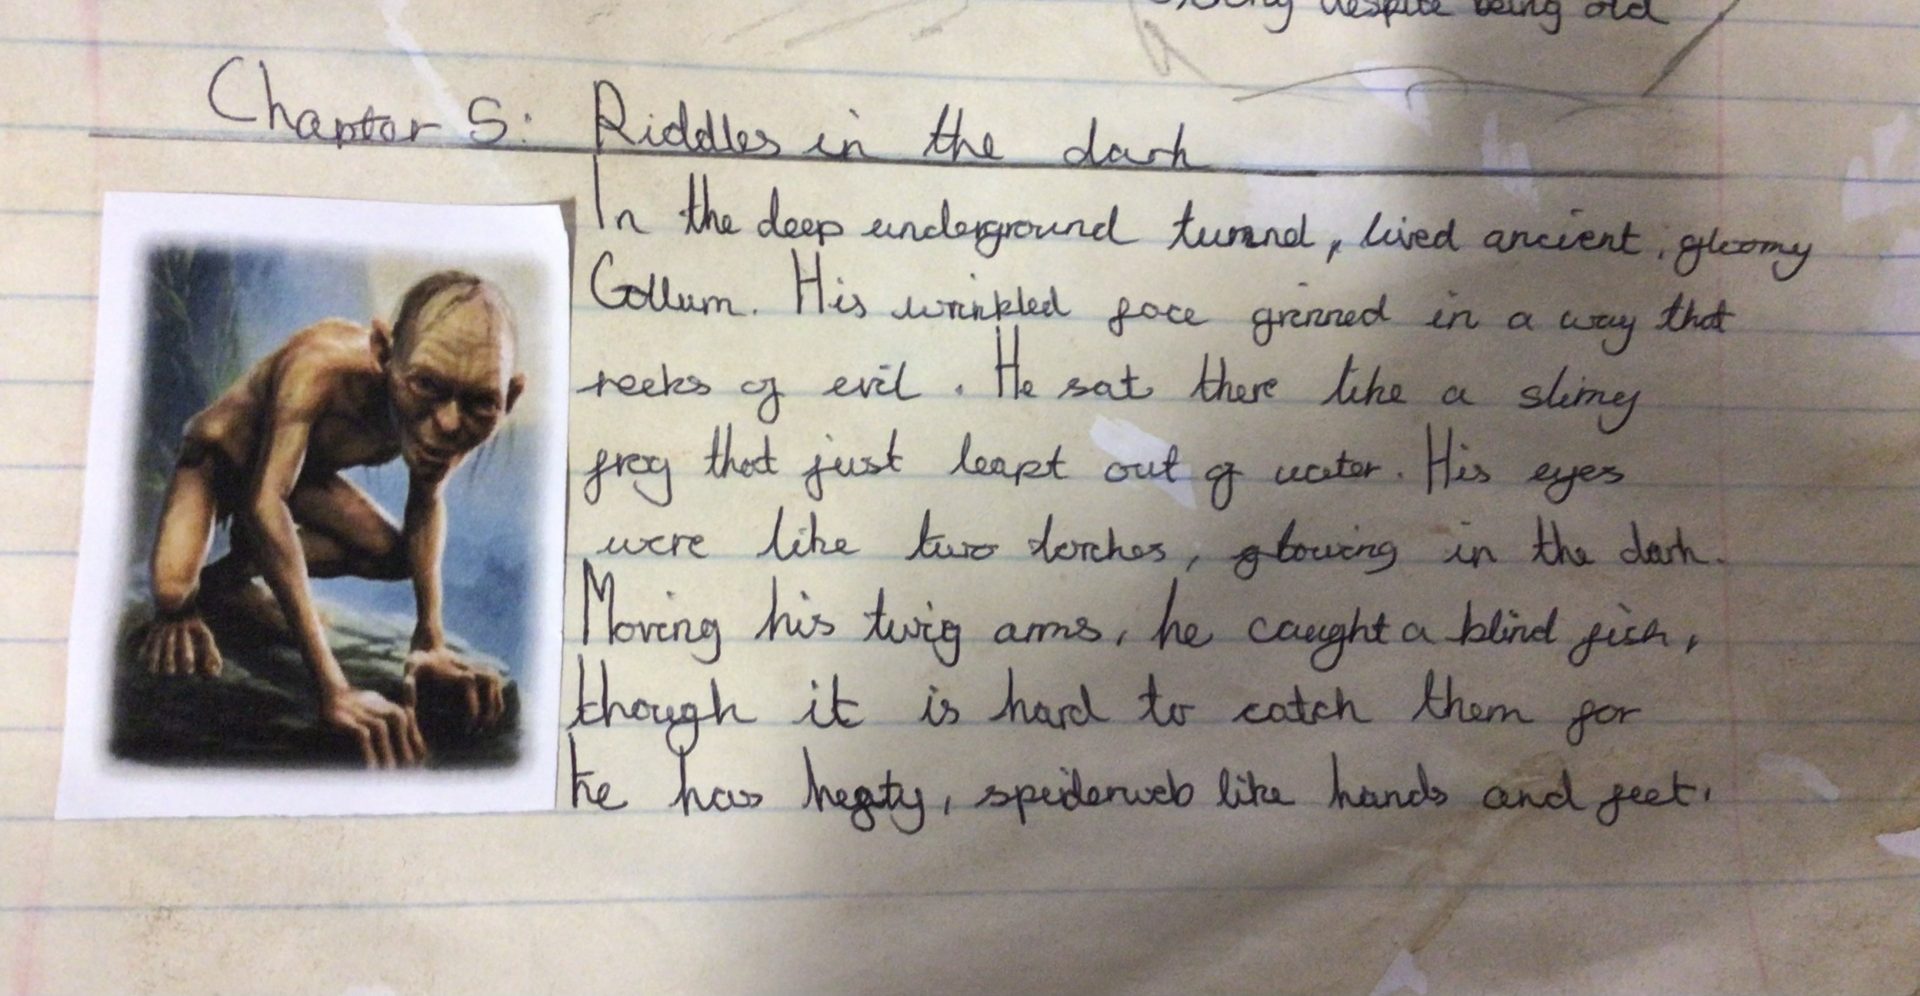 being despite being old
Chapter 5: Riddles in the dark
In the deep underground tunnel, lived ancient, gloomy
Gollum. His wrinkled face grinned in a way that
reeks of evil. He sat there like a slimy
frog that just leapt out of water. His eyes
were like two torches, glowing in the dark.
Moving his twig arms, he caught a blind fish,
though it is hard to catch them for
he has hegty, spiderweb like hands and feet.